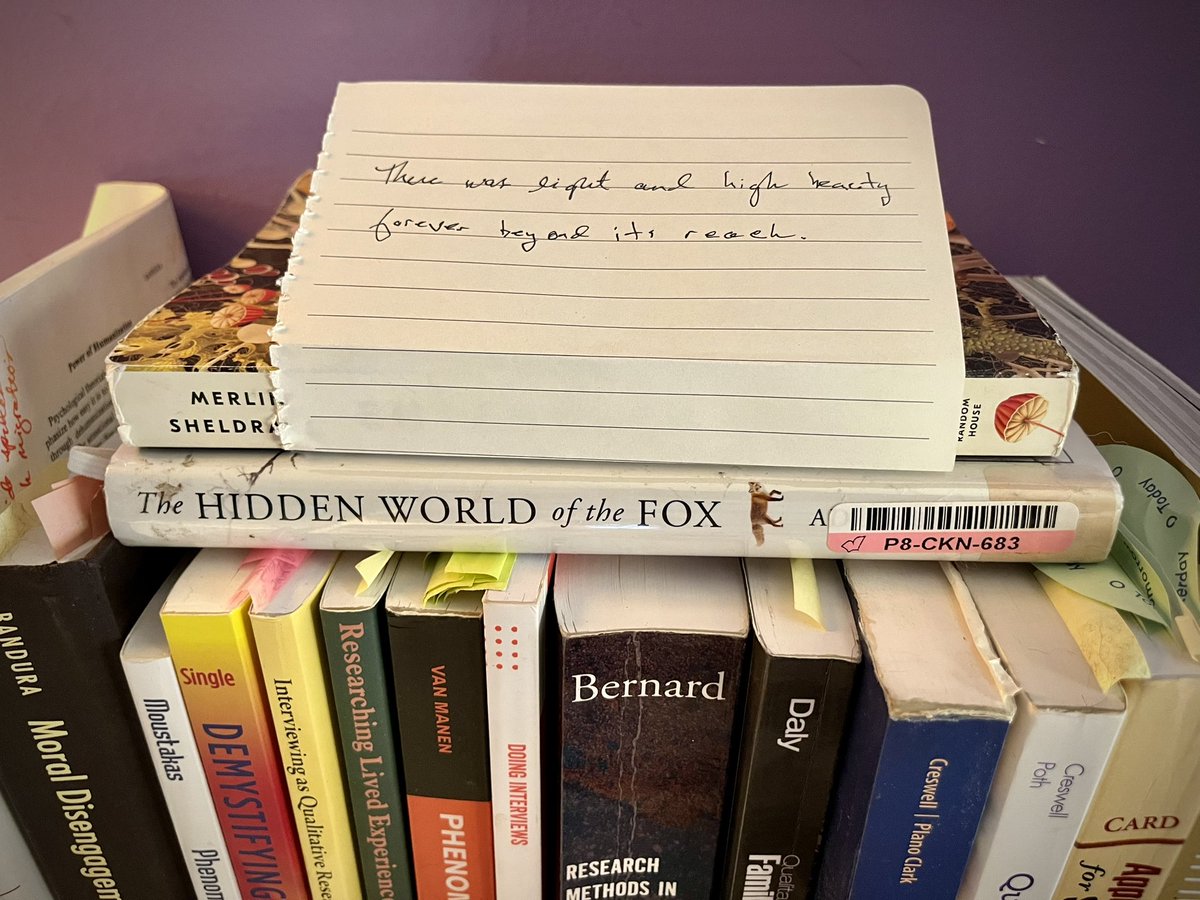 There was light and high beauty
forever beyond its reach.
MERLIN
SHELDRA
RANDOM
HOUSE
The HIDDEN WORLD of the FOX
A
P8-CKN-683
Power of Humanization
Psychological theories
how easy it is to
through
BANDURA Moral Disengagem
Moustakas Phenom
Single
DEMYSTIFYING
Interviewing as Qualitative Rese
Researching Lived Experienc
VAN MANEN
PHENOM
DOING INTERVIEWS
Bernard
RESEARCH
METHODS IN
Daly
Qualita
Famil
Creswell | Plano Clark
Creswell
Poth
Qu
CARD
App
for S
O Today